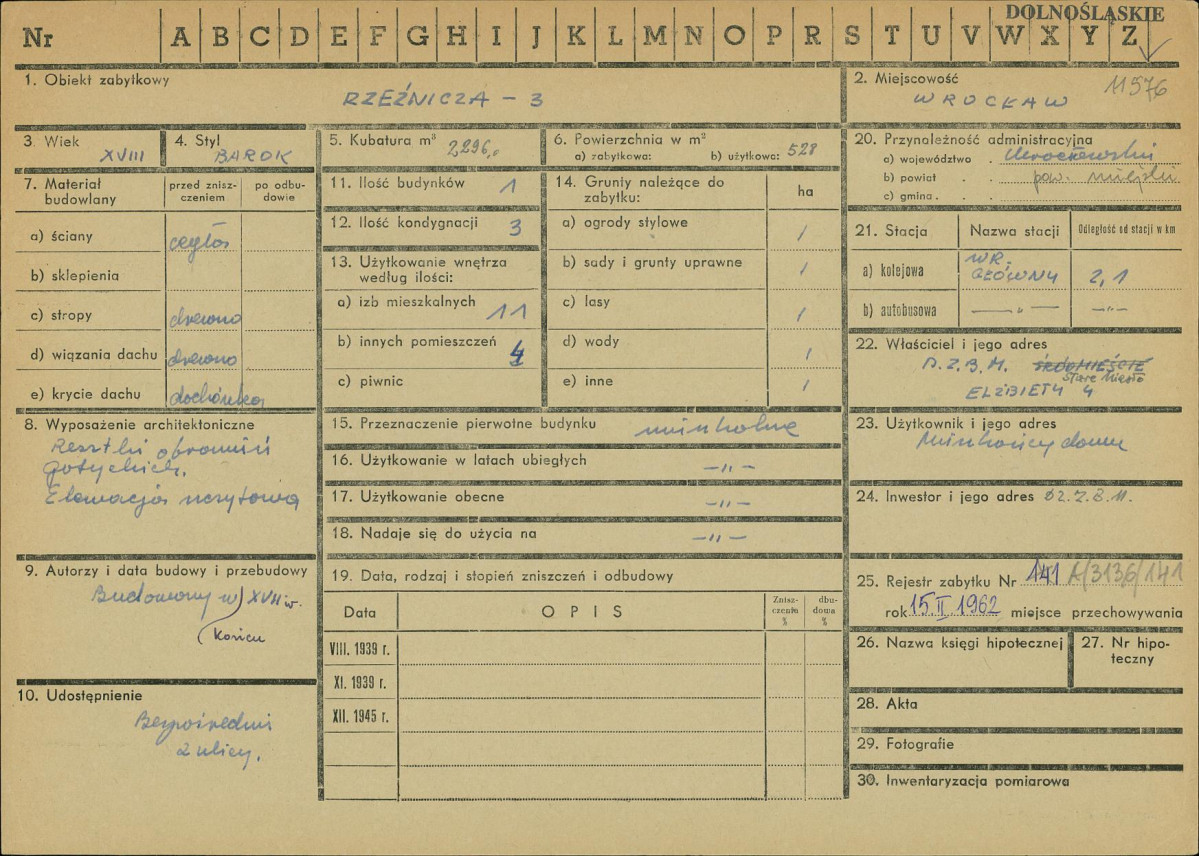 DOLNOŚLĄSKIE
Nr A B C D E F G H I J K L M N O P R S T U V W X Y Z
1. Obiekt zabytkowy
RZEŹNICZA - 3
2. Miejscowość
11576
WROCŁAW
3 Wiek
XVIII
4. Styl
BAROK
5. Kubatura m³ 2,296,0
6. Powierzchnia w m²
a) zabytkowa: b) użytkowa: 528
20. Przynależność administracyjna
a) województwo . Wrocławski
b) powiat . . pow. miejski
c) gmina . . .
7. Materiał budowlany
przed zniszczeniem
po odbudowie
a) ściany cegła
b) sklepienia
c) stropy drewno
d) wiązania dachu drewno
e) krycie dachu dachówka
11. Ilość budynków 1
12. Ilość kondygnacji 3
13. Użytkowanie wnętrza według ilości:
a) izb mieszkalnych 11
b) innych pomieszczeń
c) piwnic
14. Grunty należące do zabytku:
ha
a) ogrody stylowe /
b) sady i grunty uprawne /
c) lasy /
d) wody /
e) inne /
21. Stacja
Nazwa stacji
Odległość od stacji w km
a) kolejowa WR. GŁÓWNY 2,1
b) autobusowa — „ — — „ —
22. Właściciel i jego adres
D.Z.B.M. ŚRÓDMIEŚCIE
Stare Miasto
ELŻBIETY 4
8. Wyposażenie architektoniczne
Resztki obramień
gotyckich.
Elewacja szczytowa
15. Przeznaczenie pierwotne budynku mieszkalne
16. Użytkowanie w latach ubiegłych — „ —
17. Użytkowanie obecne — „ —
18. Nadaje się do użycia na — „ —
23. Użytkownik i jego adres
Mieszkańcy domu
24. Inwestor i jego adres DZ.Z.B.M.
9. Autorzy i data budowy i przebudowy
Budowany w XVII w.
(Końcu
19. Data, rodzaj i stopień zniszczeń i odbudowy
Data
OPIS
Zniszczenia %
dbudowa %
VIII. 1939 r.
XI. 1939 r.
XII. 1945 r.
25. Rejestr zabytku Nr 141 A/3136/141
rok 15.II 1962 miejsce przechowywania
26. Nazwa księgi hipotecznej
27. Nr hipoteczny
10. Udostępnienie
Bezpośredni
z ulicy.
28. Akta
29. Fotografie
30. Inwentaryzacja pomiarowa